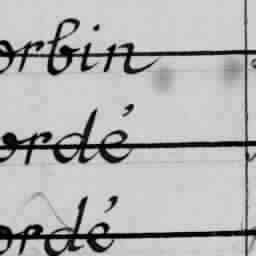 orbin
ordé
ordé